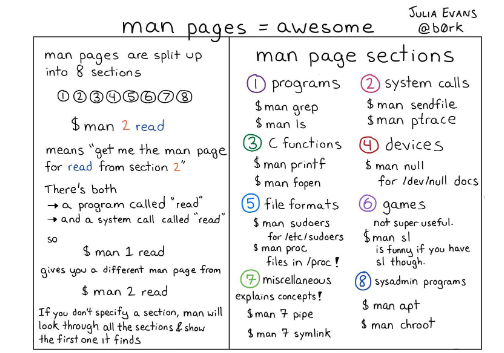 man pages = awesome
JULIA EVANS
@b0rk
man pages are split up
into 8 sections
① ② ③ ④ ⑤ ⑥ ⑦ ⑧
$ man 2 read
means "get me the man page
for read from section 2"
There's both
→ a program called "read"
→ and a system call called "read"
so
$ man 1 read
gives you a different man page from
$ man 2 read
If you don't specify a section, man will
look through all the sections & show
the first one it finds
man page sections
① programs
$ man grep
$ man ls
② system calls
$ man sendfile
$ man ptrace
③ C functions
$ man printf
$ man fopen
④ devices
$ man null
for /dev/null docs
⑤ file formats
$ man sudoers
for /etc/sudoers
$ man proc
files in /proc!
⑥ games
not super useful.
$ man sl
is funny if you have
sl though.
⑦ miscellaneous
explains concepts!
$ man 7 pipe
$ man 7 symlink
⑧ sysadmin programs
$ man apt
$ man chroot